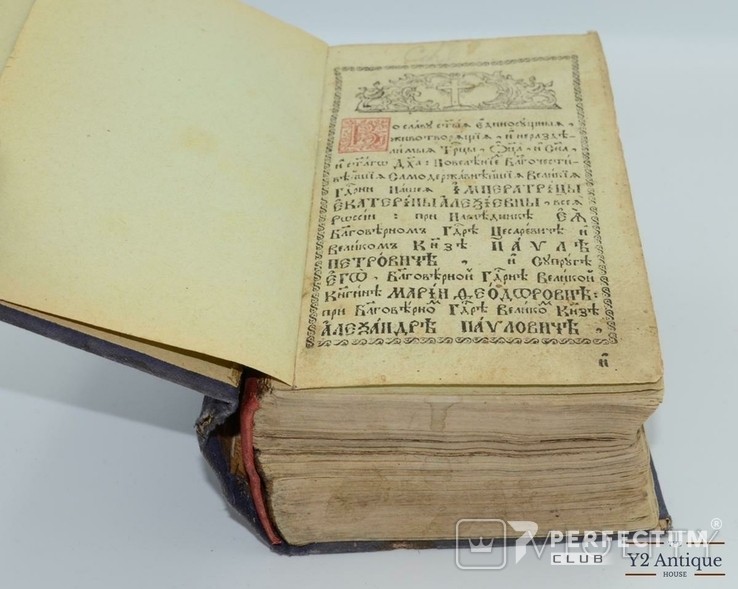 Во славу ст҃ыѧ єдиносꙋщныѧ,
животворѧщїѧ, и нераздѣ-
лимыѧ Трⷪ҇цы, Ѻ҆ц҃а, и Сн҃а,
и ст҃агѡ Дх҃а: Повелѣнїемъ Благочести-
вѣйшїѧ Самодержавнѣйшїѧ Великїѧ
Гдⷭ҇рни Нашеѧ ИМПЕРАТРИЦЫ
ЄКАТЕРИНЫ АЛЕѮІЕВНЫ, всеѧ
Рѡссїи: при Наслѣдникѣ ЄѦ
Благовѣрномъ Гдⷭ҇рѣ Цесаревичѣ и
Великомъ Кн҃зѣ ПАУЛѢ
ПЕТРОВИЧѢ, и Супругѣ
ЄГѠ, Благовѣрной Гдⷭ҇рнѣ Великой
Кнⷢ҇инѣ МАРІИ ѲЕОДѠРОВНѢ:
при Благовѣрно Гдⷭ҇рѣ Велико Кн҃зѣ
АЛЕѮАНДРѢ ПАУЛОВИЧѢ,
и
PERFECTUM®
CLUB
Y2 Antique
HOUSE